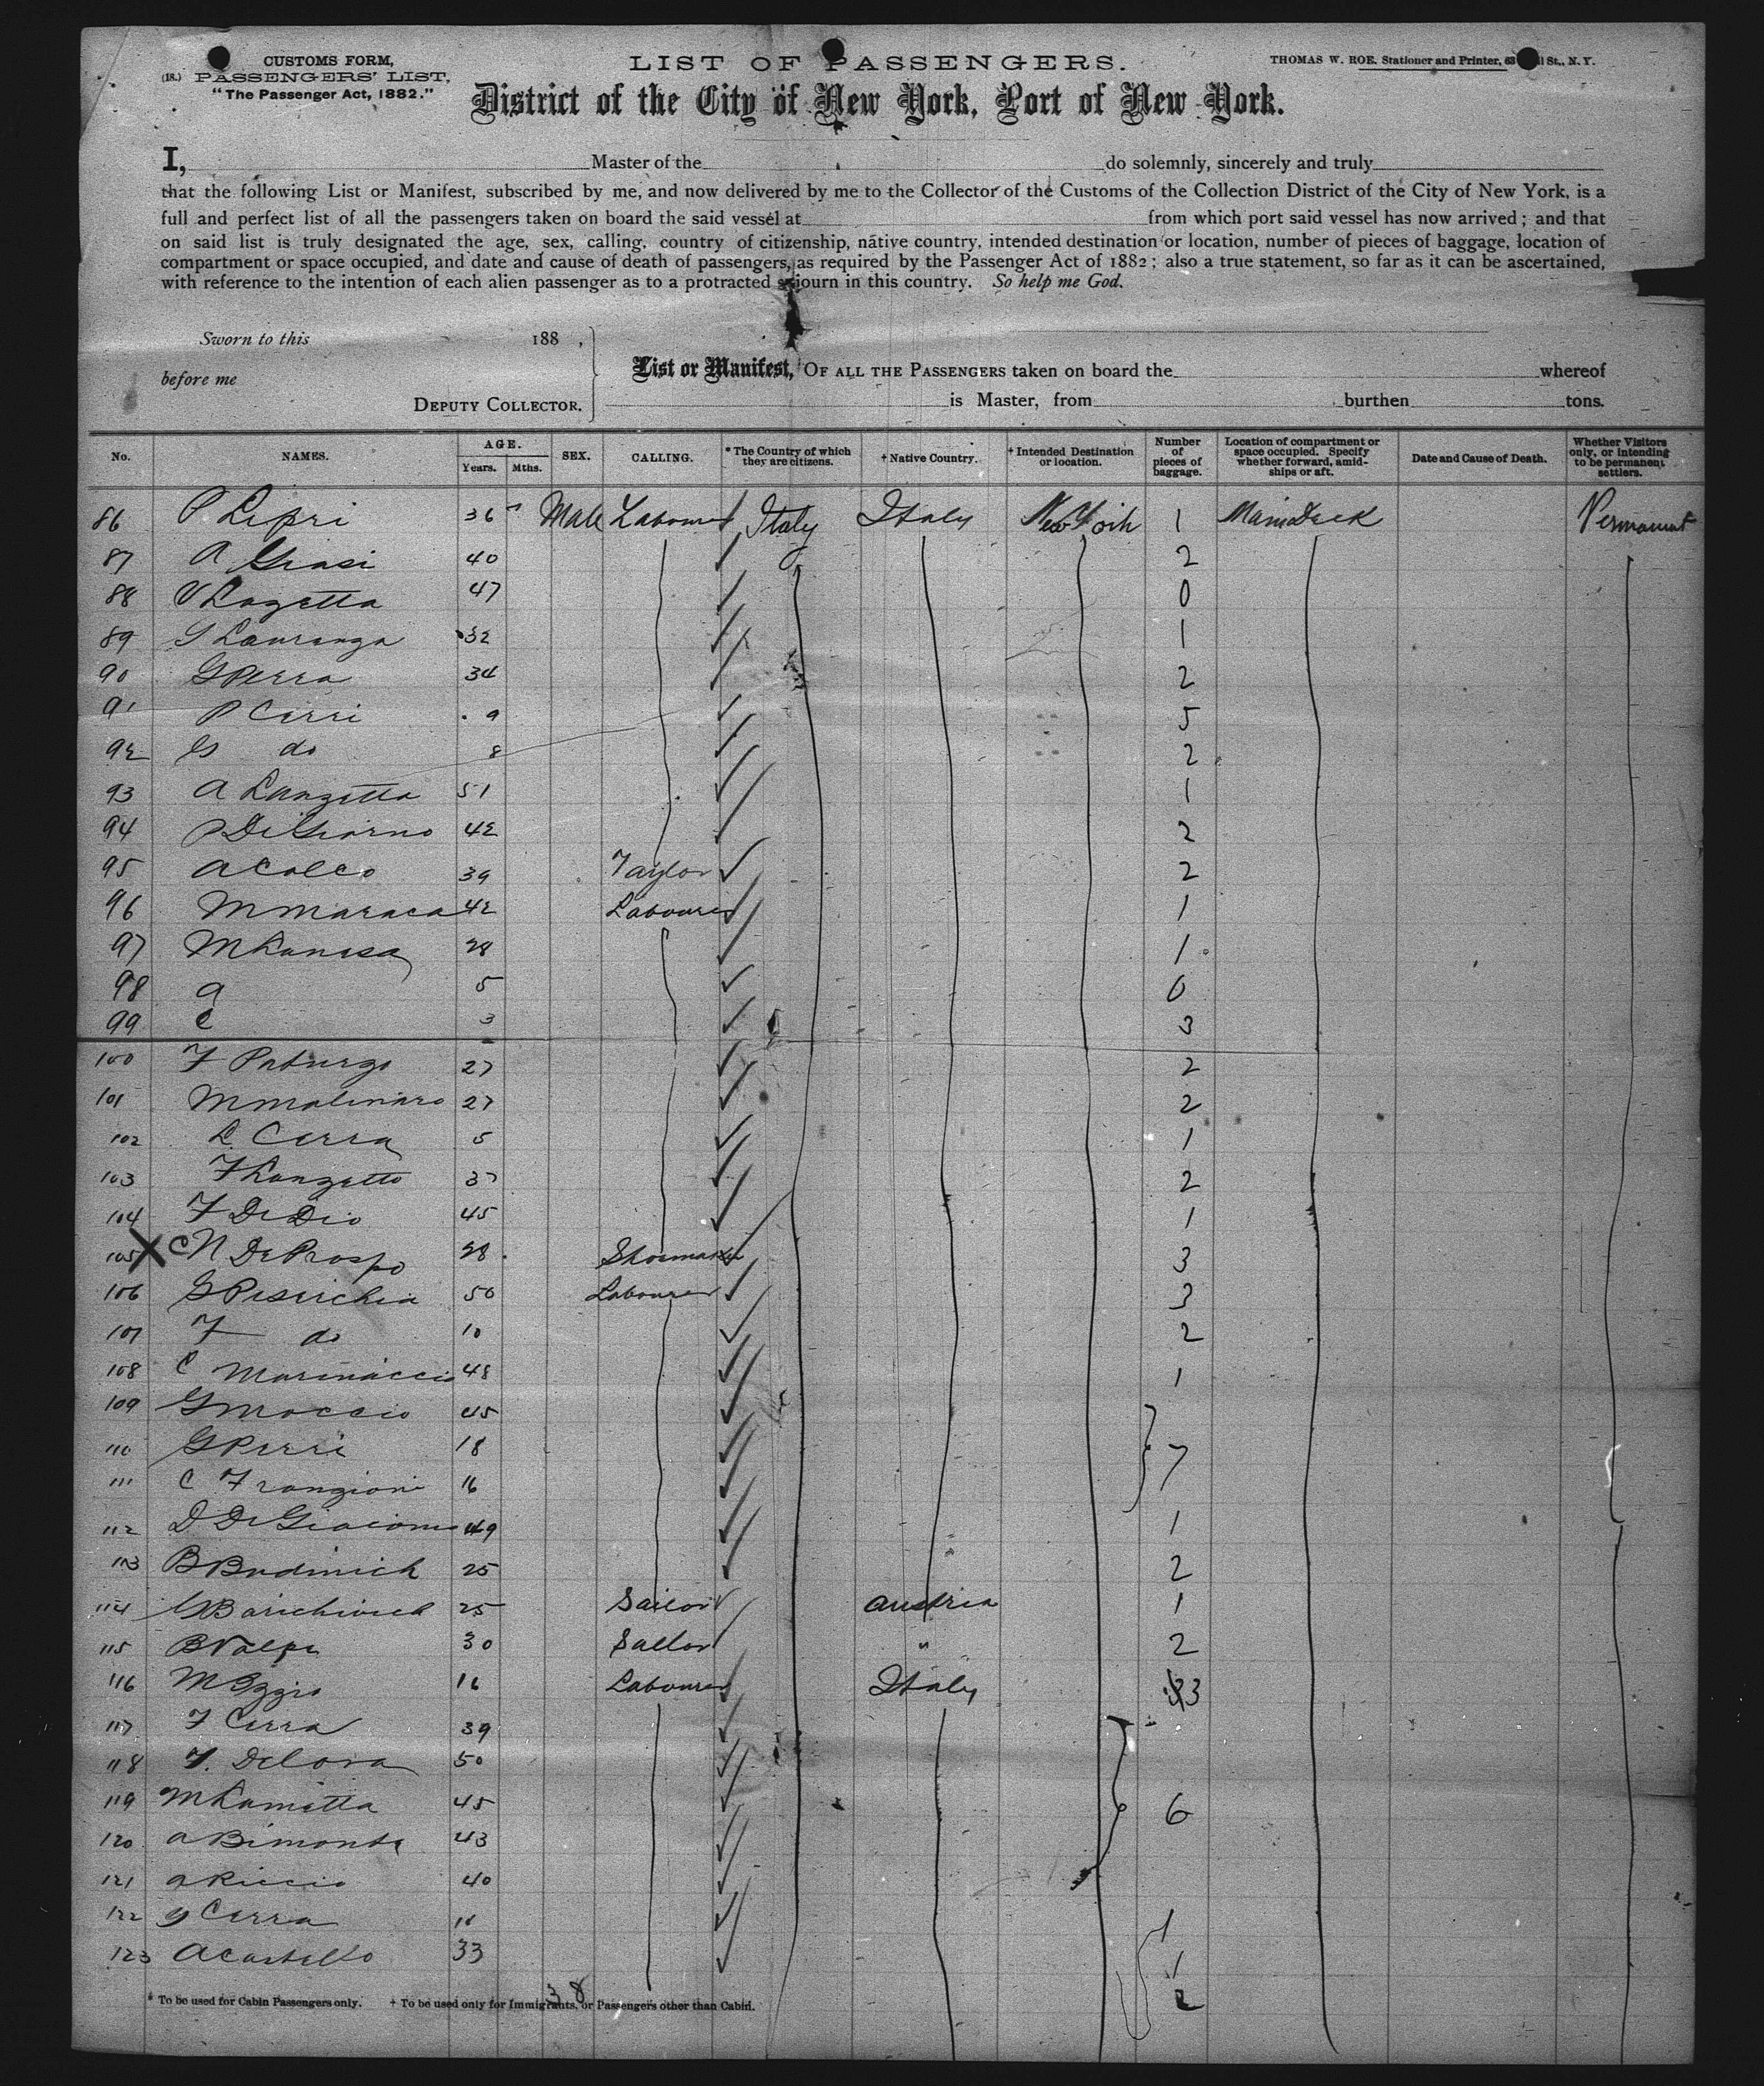 CUSTOMS FORM,
(18.) PASSENGERS' LIST,
"The Passenger Act, 1882."
LIST OF PASSENGERS.
THOMAS W. ROE, Stationer and Printer, 63 St., N. Y.
District of the City of New York, Port of New York.
I, Master of the do solemnly, sincerely and truly
that the following List or Manifest, subscribed by me, and now delivered by me to the Collector of the Customs of the Collection District of the City of New York, is a
full and perfect list of all the passengers taken on board the said vessel at from which port said vessel has now arrived; and that
on said list is truly designated the age, sex, calling, country of citizenship, native country, intended destination or location, number of pieces of baggage, location of
compartment or space occupied, and date and cause of death of passengers, as required by the Passenger Act of 1882; also a true statement, so far as it can be ascertained,
with reference to the intention of each alien passenger as to a protracted sojourn in this country. So help me God.
Sworn to this 188 ,
before me
DEPUTY COLLECTOR.
List or Manifest, OF ALL THE PASSENGERS taken on board the whereof
is Master, from burthen tons.
No. NAMES. AGE. Years. Mths. SEX. CALLING. * The Country of which they are citizens. † Native Country. † Intended Destination or location. Number of pieces of baggage. Location of compartment or space occupied. Specify whether forward, amidships or aft. Date and Cause of Death. Whether Visitors only, or intending to be permanent settlers.
86 P Lepri 36 Male Labourer Italy Italy New York 1 Main Deck Permanent
87 A Grasi 40 2
88 V Lazetta 47 0
89 G Lauranza 32 1
90 G Perra 34 2
91 P Cerri 9 5
92 G do 8 2
93 A Lanzetta 51 1
94 P DeGiorno 42 2
95 A Calco 39 Taylor 2
96 M Maraca 42 Labourer 1
97 M Lanasa 28 1
98 a 5 0
99 C 3 3
100 F 27 2
101 M Molinaro 27 2
102 L Cerra 5 1
103 F Lanzetto 37 2
104 F DeDio 45 1
105 X C N DeProspo 28 Shoemaker 3
106 G Pesirchia 50 Labourer 3
107 F do 10 2
108 C Marinaccio 48 1
109 G Moccio 45
110 G Perri 18 7
111 C Frangioni 16
112 D DeGiacomo 49 1
113 B Budinich 25 2
114 G Barichivich 25 Sailor Austria 1
115 B Valpi 30 Sailor " 2
116 M Izzio 16 Labourer Italy 3
117 F Cerra 39
118 F. DeLora 50
119 M Lametta 45 6
120 A Bimonte 43
121 A Riccio 40
122 G Cerra 11 1
123 A Castello 33 1
2
38
* To be used for Cabin Passengers only. † To be used only for Immigrants, or Passengers other than Cabin.